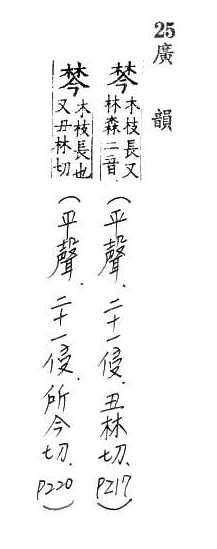 25廣韻
棽木枝長又林森二音(平聲、二十一侵、丑林切、P217)
棽木枝長也又丑林切(平聲、二十一侵、所今切、P220)